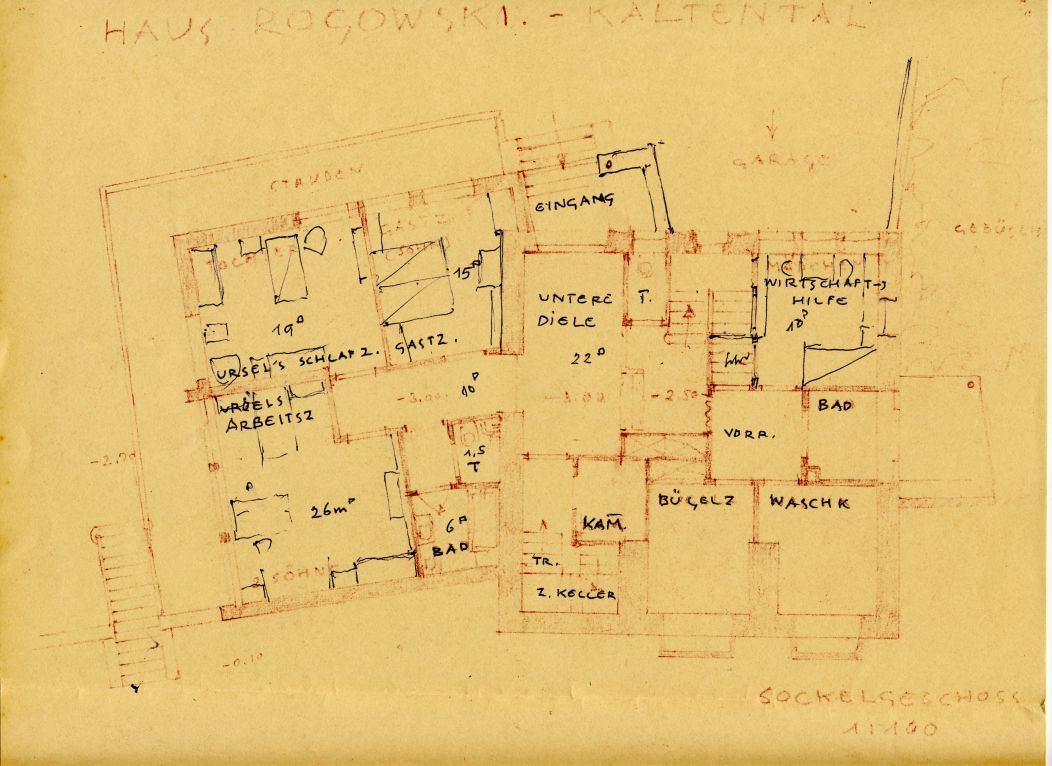 HAUS ROGOWSKI. - KALTENTAL
GARAGE
STAUDEN
EINGANG
GEBÜSCH
TOCHTER
GASTZ.
15□
WIRTSCHAFT-
HILFE
10□
UNTERE
DIELE
22□
T.
19□
URSEL'S SCHLAFZ.
GASTZ.
10□
-3.00
-3.00
-2.50
URSELS
ARBEITSZ
BAD
VORR.
1,5
T
-2.00
26m□
6□
BAD
KAM.
BÜGELZ
WASCHK
TR.
Z. KELLER
2 SÖHNE
-0.10
SOCKELGESCHOSS
1:100